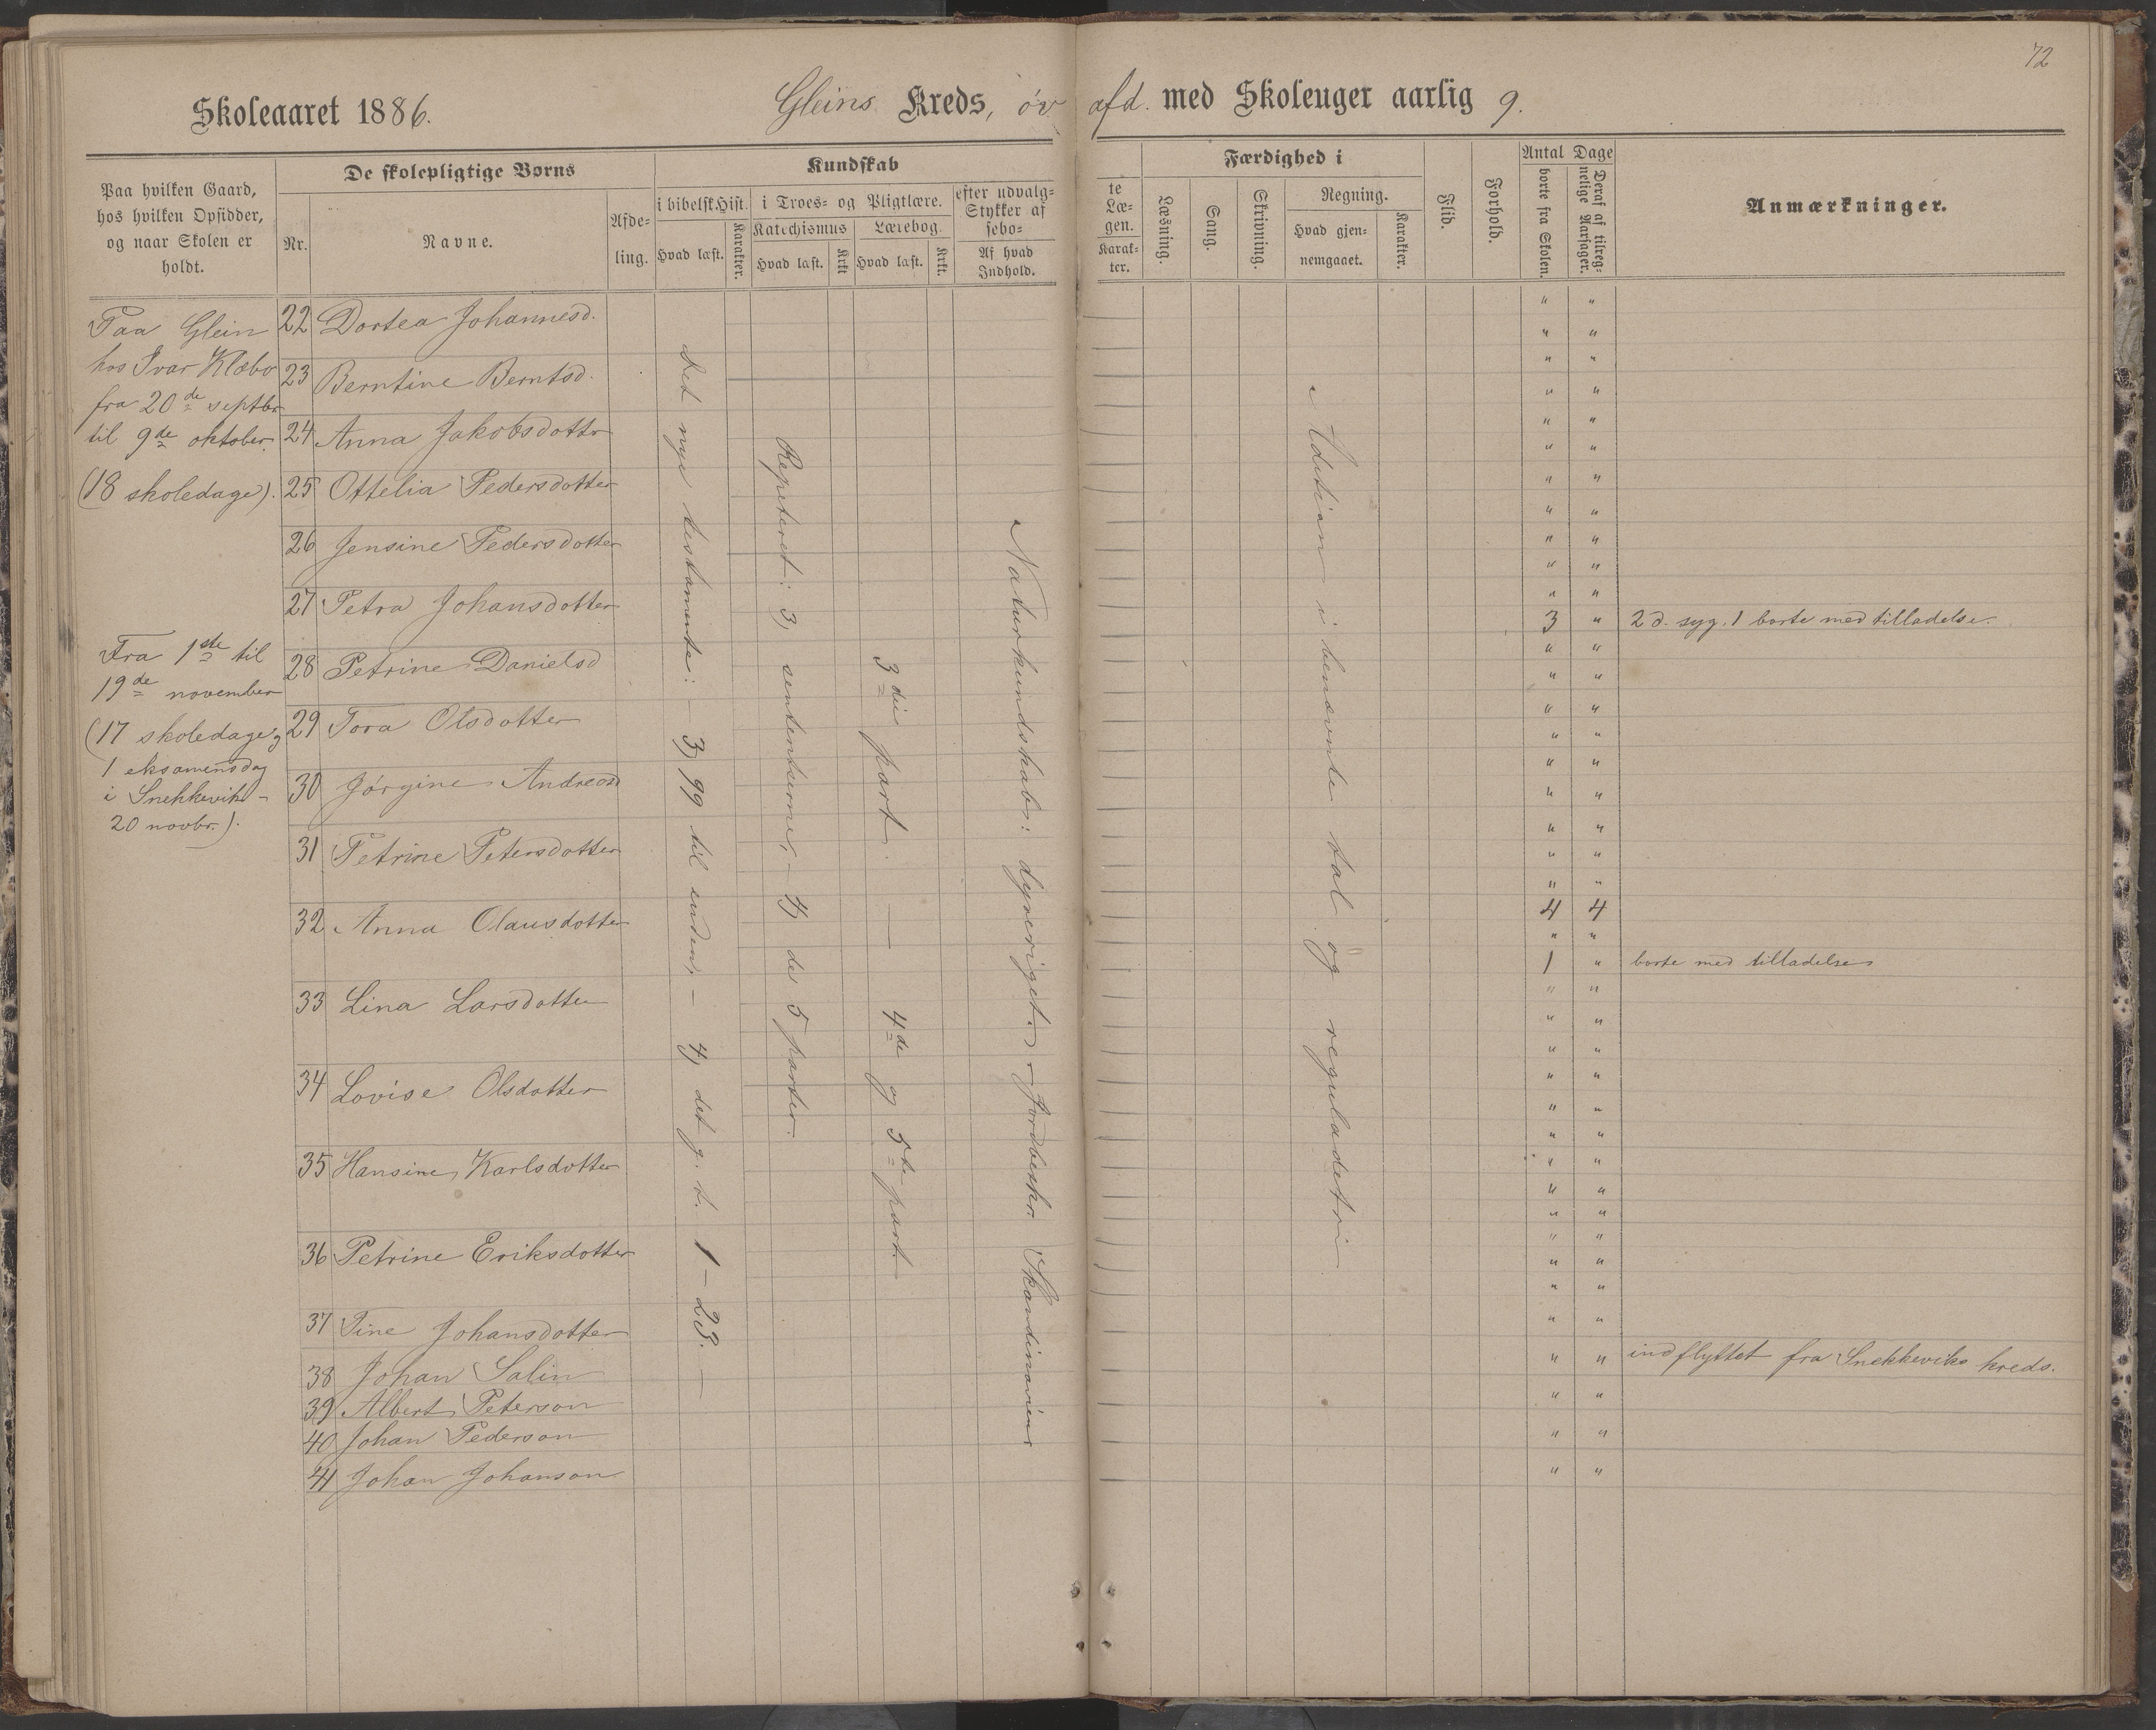 72
Skoleaaret 1886. Gleins Kreds, øv. afd. med Skoleuger aarlig 9.
Paa hvilken Gaard,
hos hvilken Opsidder,
og naar Skolen er
holdt.
De skolepligtige Børns
Nr.
Navne.
Afde-
ling.
Kundskab
i bibelsk Hist.
Hvad læst.
Karakter.
i Troes- og Pligtlære.
Katechismus
Hvad læst.
Krkt.
Lærebog.
Hvad læst.
Krkt.
efter udvalg-
Stykker af
sebo-
Af hvad
Indhold.
te
Læ-
gen.
Karak-
ter.
Færdighed i
Læsning.
Sang.
Skrivning.
Regning.
Hvad gjen-
nemgaaet.
Karakter.
Flid.
Forhold.
Antal Dage
borte fra Skolen.
Deraf af tilreg-
nelige Aarsager.
Anmærkninger.
Paa Glein
hos Ivar Klæbo
fra 20de septbr
til 9de oktober.
(18 skoledage).
Fra 1ste til
19de november
(17 skoledage og
1 eksamensdag
i Snekkevik -
20 novbr.).
22 Dortea Johannesd.
23 Berntine Berntsd.
24 Anna Jakobsdotter
25 Ottelia Pedersdotter
26 Jensine Pedersdotter
27 Petra Johansdotter
28 Petrine Danielsd
29 Tora Olsdotter
30 Jørgine Andreasd
31 Petrine Petersdotter
32 Anna Olausdotter
33 Lina Larsdotter
34 Lovise Olsdotter
35 Hansine Karlsdotter
36 Petrine Eriksdotter
37 Tine Johansdotter
38 Johan Salin
39 Albert Peterson
40 Johan Pederson
41 Johan Johanson
Det nye testamente: - 3, 99 til enden, - 4, det g. t. 1 - 23. -
Repeteret: 3, sentenserne, - 4, de 5 parter.
3die part. - 4de og 5te part.
Naturkundskab: dyreriget. - Jordbeskr. Skandinavien
Addition i benævnte tal og reguladetri
3 " 2 d. syg. 1 borte med tilladelse.
4 4
1 " borte med tilladelse
" " indflyttet fra Snekkeviks kreds.